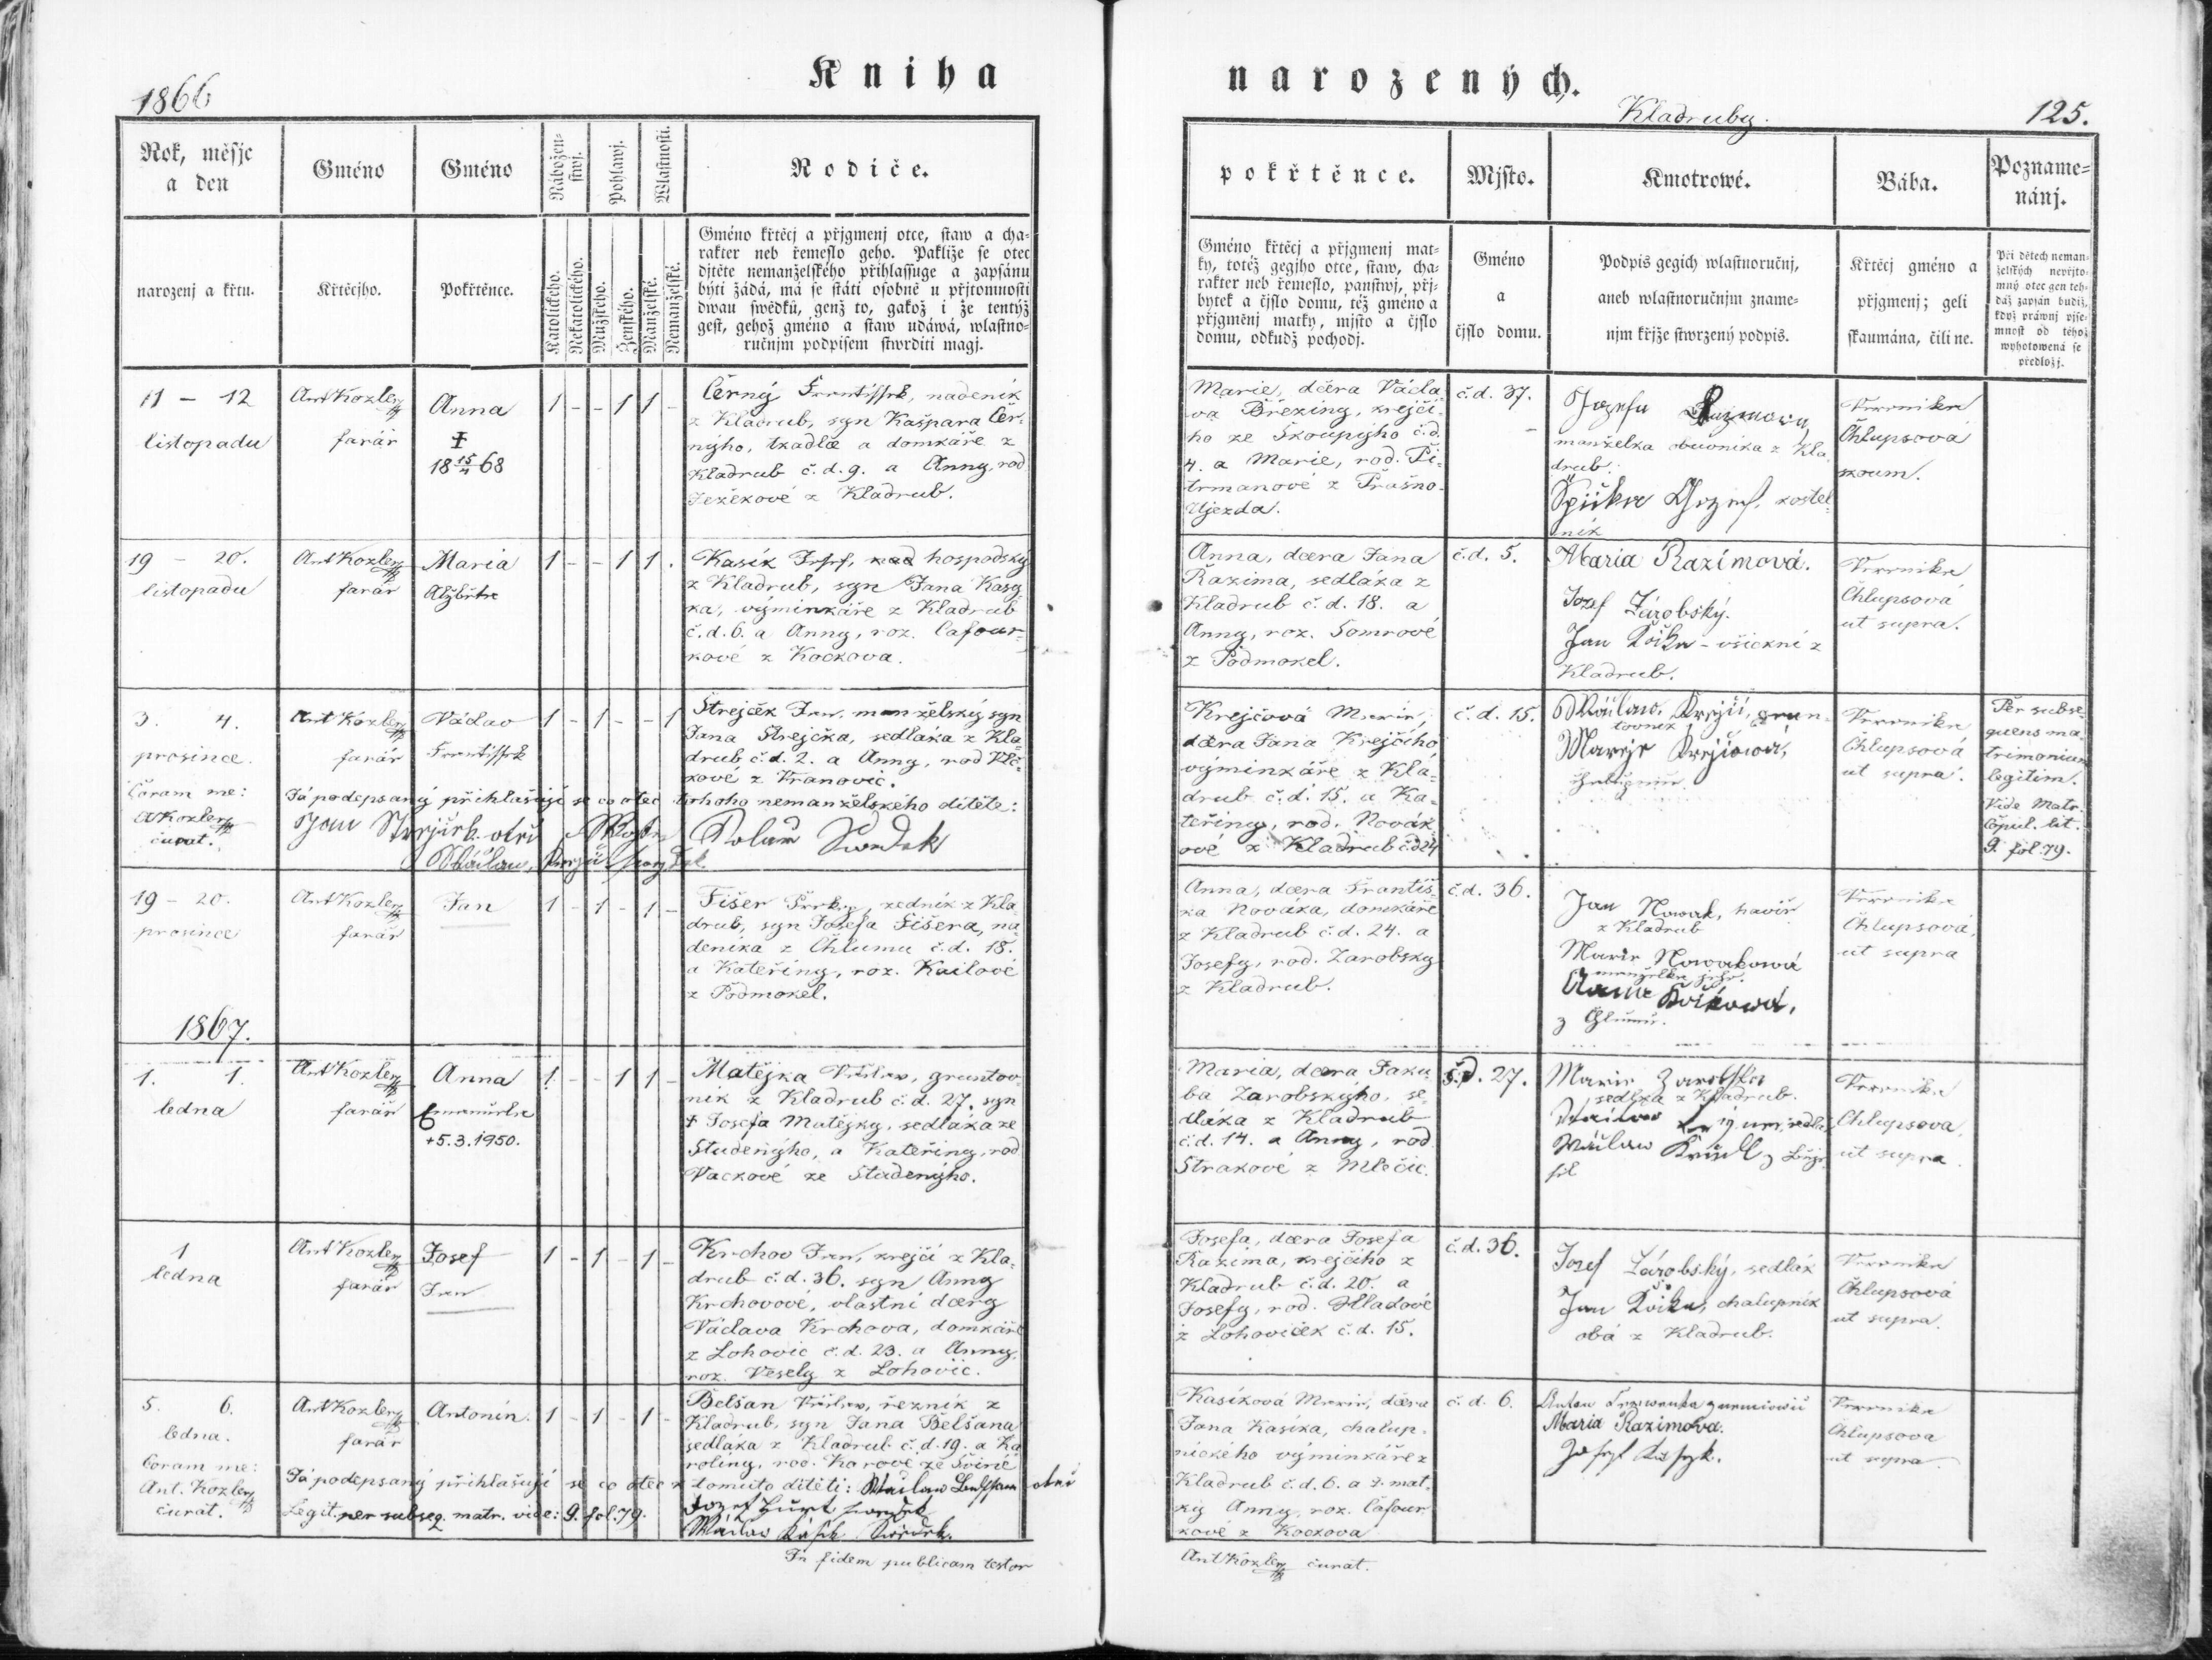 1866
Kniha
narozených.
Kladruby.
125.
Rok, měsjc
a den
Gméno
Gméno
Nábožen-
stwj.
Pohlawj.
Wlastnosti.
Rodiče.
narozenj a křtu.
Křtěcjho.
Pokřtěnce.
Katolického.
Nekatolického.
Mužského.
Ženského.
Manželské.
Nemanželské.
Gméno křtěcj a přjgmenj otce, staw a cha-
rakter neb řemeslo geho. Pakliže se otec
djtěte nemanželského přihlassuge a zapsánu
býti žádá, má se státi osobně u přjtomnosti
dwau swědků, genž to, gakož i že tentýž
gest, gehož gméno a staw udáwá, wlastno-
ručnjm podpisem stwrditi magj.
pokřtěnce.
Mjsto.
Kmotrowé.
Bába.
Pozname-
nánj.
Gméno křtěcj a přjgmenj mat-
ky, totéž gegjho otce, staw, cha-
rakter neb řemeslo, panstwj, přj-
bytek a čjslo domu, též gméno a
přjgmenj matky, mjsto a čjslo
domu, odkudž pocházj.
Gméno
a
čjslo domu.
Podpis gegich wlastnoručnj,
aneb wlastnoručnjm zname-
njm křjže stwrzený podpis.
Křtěcj gméno a
přjgmenj; geli
skaumána, čili ne.
Při dětech neman-
želských nepřjto-
mný otec gen teh-
dáž zapsán budiž,
když práwnj pjse-
mnost od téhož
wyhotowená se
předložj.
11 - 12
listopadu
Ant Kozler
farář
Anna
†
18 15/4 68
1 - - 1 1 -
Černý Frantissek, nadeník
z Kladrub, syn Kašpara Čer-
nýho, tkadlce a domkáře z
Kladrub č.d. 9. a Anny, rod.
Ježekové z Kladrub.
Marie, dcera Václa-
va Březiny, krejčí-
ho ze Skoupýho č.d.
4. a Marie, rod. Pi-
trmanové z Prašno-
Ujezda.
č.d. 37.
Jozefa
manželka obuvníka z Kla-
drub.
Spička Jozef, kostel-
ník
Veronika
Chlupsová
zkoum.
19 - 20.
listopadu
Ant Kozler
farář
Maria
Alžběta
1 - - 1 1 .
Kasík Josef, hospodský
z Kladrub, syn Jana Kasý-
ka, výminkáře z Kladrub
č.d. 6. a Anny, roz. Cafour-
kové z Kockova.
Anna, dcera Jana
Razima, sedláka z
Kladrub č.d. 18. a
Anny, roz. Somrové
z Podmokel.
č.d. 5.
Maria Razimová.
Jozef Zárobský.
Jan - všickni z
Kladrub.
Veronika
Chlupsová
ut supra.
3. 4.
prosince.
Coram me:
A Kozler
curat.
Ant Kozler
farář
Václav
Frantissek
1 - 1 - - 1
Strejček Jan, manželský syn
Jana Strejčka, sedláka z Kla-
drub č.d. 2. a Anny, rod. Vlč-
kové z Vranovic.
Já podepsaný přihlašuji se co otec tohoho nemanželského dítěte:
Jan Strejček otec
Krejčová Marie,
dcera Jana Krejčího
výminkáře z Kla-
drub č.d. 15. a Ka-
teřiny, rod. Novák-
ové z Kladrub č.d. 24
č.d. 15.
Wáclaw Krejčí, grun-
tovník
Marye Krejčiowá,
Veronika
Chlupsová
ut supra.
Per subse-
quens ma-
trimonium
legitim.
Vide Matr.
Copul. lit.
9. fol. 79.
19 - 20.
prosince
Ant Kozler
farář
Jan
1 - 1 - 1 -
Fišer, zedník z Kla-
drub, syn Josefa Fišera, na-
deníka z Chlumu č.d. 18.
a Kateřiny, roz. Kailové
z Podmokel.
Anna, dcera Františ-
ka Nováka, domkáře
z Kladrub č.d. 24. a
Josefy, rod. Zarobsky
z Kladrub.
č.d. 36.
Jan Nowak, havíř
z Kladrub
Marie Nowakowá
manželka jeho.
Anna
z Chlumu.
Veronika
Chlupsová,
ut supra
1867.
1. 1.
ledna
Ant Kozler
farář
Anna
Emanuela
+5.3.1950.
1 - - 1 1 -
Matějka Václav, gruntov-
ník z Kladrub č.d. 27, syn
† Josefa Matějky, sedláka ze
Studenýho, a Kateřiny, rod.
Vackové ze Studenýho.
Maria, dcera Jaku-
ba Zarobskýho, se-
dláka z Kladrub
č.d. 14. a Anny, rod.
Strakové z Mlečic.
č.d. 27.
Marie Zarobska
sedlka z Kladrub.
Veronika
Chlupsova,
ut supra.
1
ledna
Ant Kozler
farář
Josef
Jan
1 - 1 - 1 -
Krchov Jan, krejčí z Kla-
drub č.d. 36. syn Anny
Krchovové, vlastní dcery
Václava Krchova, domkáře
z Lohovic č.d. 23. a Anny,
roz. Vesely z Lohovic.
Josefa, dcera Josefa
Razima, krejčího z
Kladrub č.d. 20. a
Josefy, rod. Hladové
z Lohoviček č.d. 15.
č.d. 36.
Jozef Zárobský, sedlák
Jan, chalupník
oba z Kladrub.
Veronika
Chlupsová
ut supra.
5. 6.
ledna.
Coram me:
Ant. Kozler
curat.
Ant Kozler
farář
Antonín.
1 - 1 - 1 -
Belšan Václav, řezník z
Kladrub, syn Jana Belšana
sedláka z Kladrub č.d. 19. a Ka-
roliny, rod. Karové ze Svině
Já podepsaný přihlašuji se co otec k tomuto dítěti: Wáclaw otec
Legit. per subseq. matr. vide: 9. fol. 79.
Kasíková Marie, dcera
Jana Kasíka, chalup-
nického výminkáře z
Kladrub č.d. 6. a ž. mat-
ky Anny, roz. Cafour-
kové z Kockova
č.d. 6.
Maria Razimova.
Veronika
Chlupsova
ut supra.
In fidem publicam testor
Ant Kozler curat.